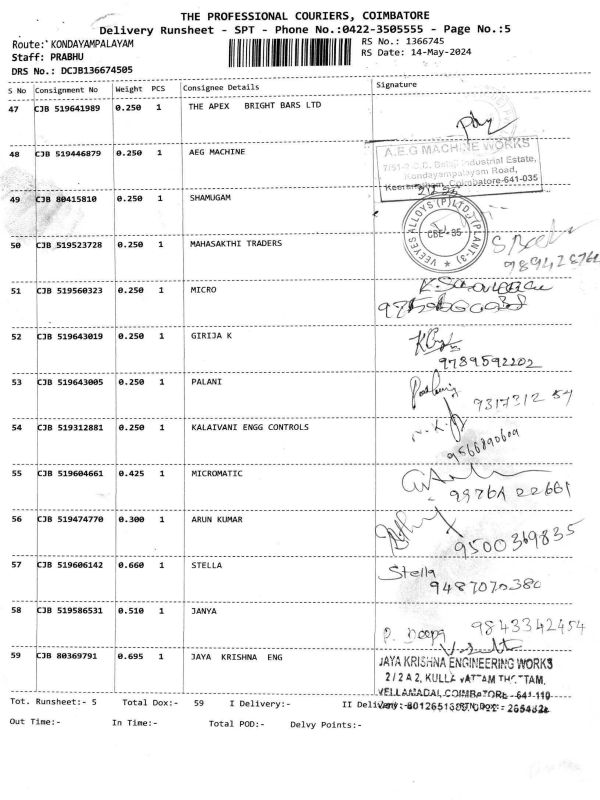 THE PROFESSIONAL COURIERS, COIMBATORE
Delivery Runsheet - SPT - Phone No.:0422-3505555 - Page No.:5
Route: KONDAYAMPALAYAM
RS No.: 1366745
Staff: PRABHU
RS Date: 14-May-2024
DRS No.: DCJB136674505
S No Consignment No Weight PCS Consignee Details Signature
47 CJB 519641989 0.250 1 THE APEX BRIGHT BARS LTD
48 CJB 519446879 0.250 1 AEG MACHINE
A.E.G MACHINE WORKS
Industrial Estate,
Kondayampalayam Road,
Coimbatore-641-035
49 CJB 80415810 0.250 1 SHAMUGAM
VEEYES ALLOYS (P) LTD., (PLANT-3) ★
CBE-35
50 CJB 519523728 0.250 1 MAHASAKTHI TRADERS
51 CJB 519560323 0.250 1 MICRO
52 CJB 519643019 0.250 1 GIRIJA K
9789592202
53 CJB 519643005 0.250 1 PALANI
54 CJB 519312881 0.250 1 KALAIVANI ENGG CONTROLS
9566890609
55 CJB 519604661 0.425 1 MICROMATIC
99764 22661
56 CJB 519474770 0.300 1 ARUN KUMAR
9500369835
57 CJB 519606142 0.660 1 STELLA
Stella
9487070380
58 CJB 519586531 0.510 1 JANYA
P. Deepa 9843342454
59 CJB 80369791 0.695 1 JAYA KRISHNA ENG
JAYA KRISHNA ENGINEERING WORKS
2/2 A 2, KULLA VATTAM THOTTAM,
VELLAMADAI, COIMBATORE - 641 110
Tot. Runsheet:- 5 Total Dox:- 59 I Delivery:- II Delivery:-
Out Time:- In Time:- Total POD:- Delvy Points:-